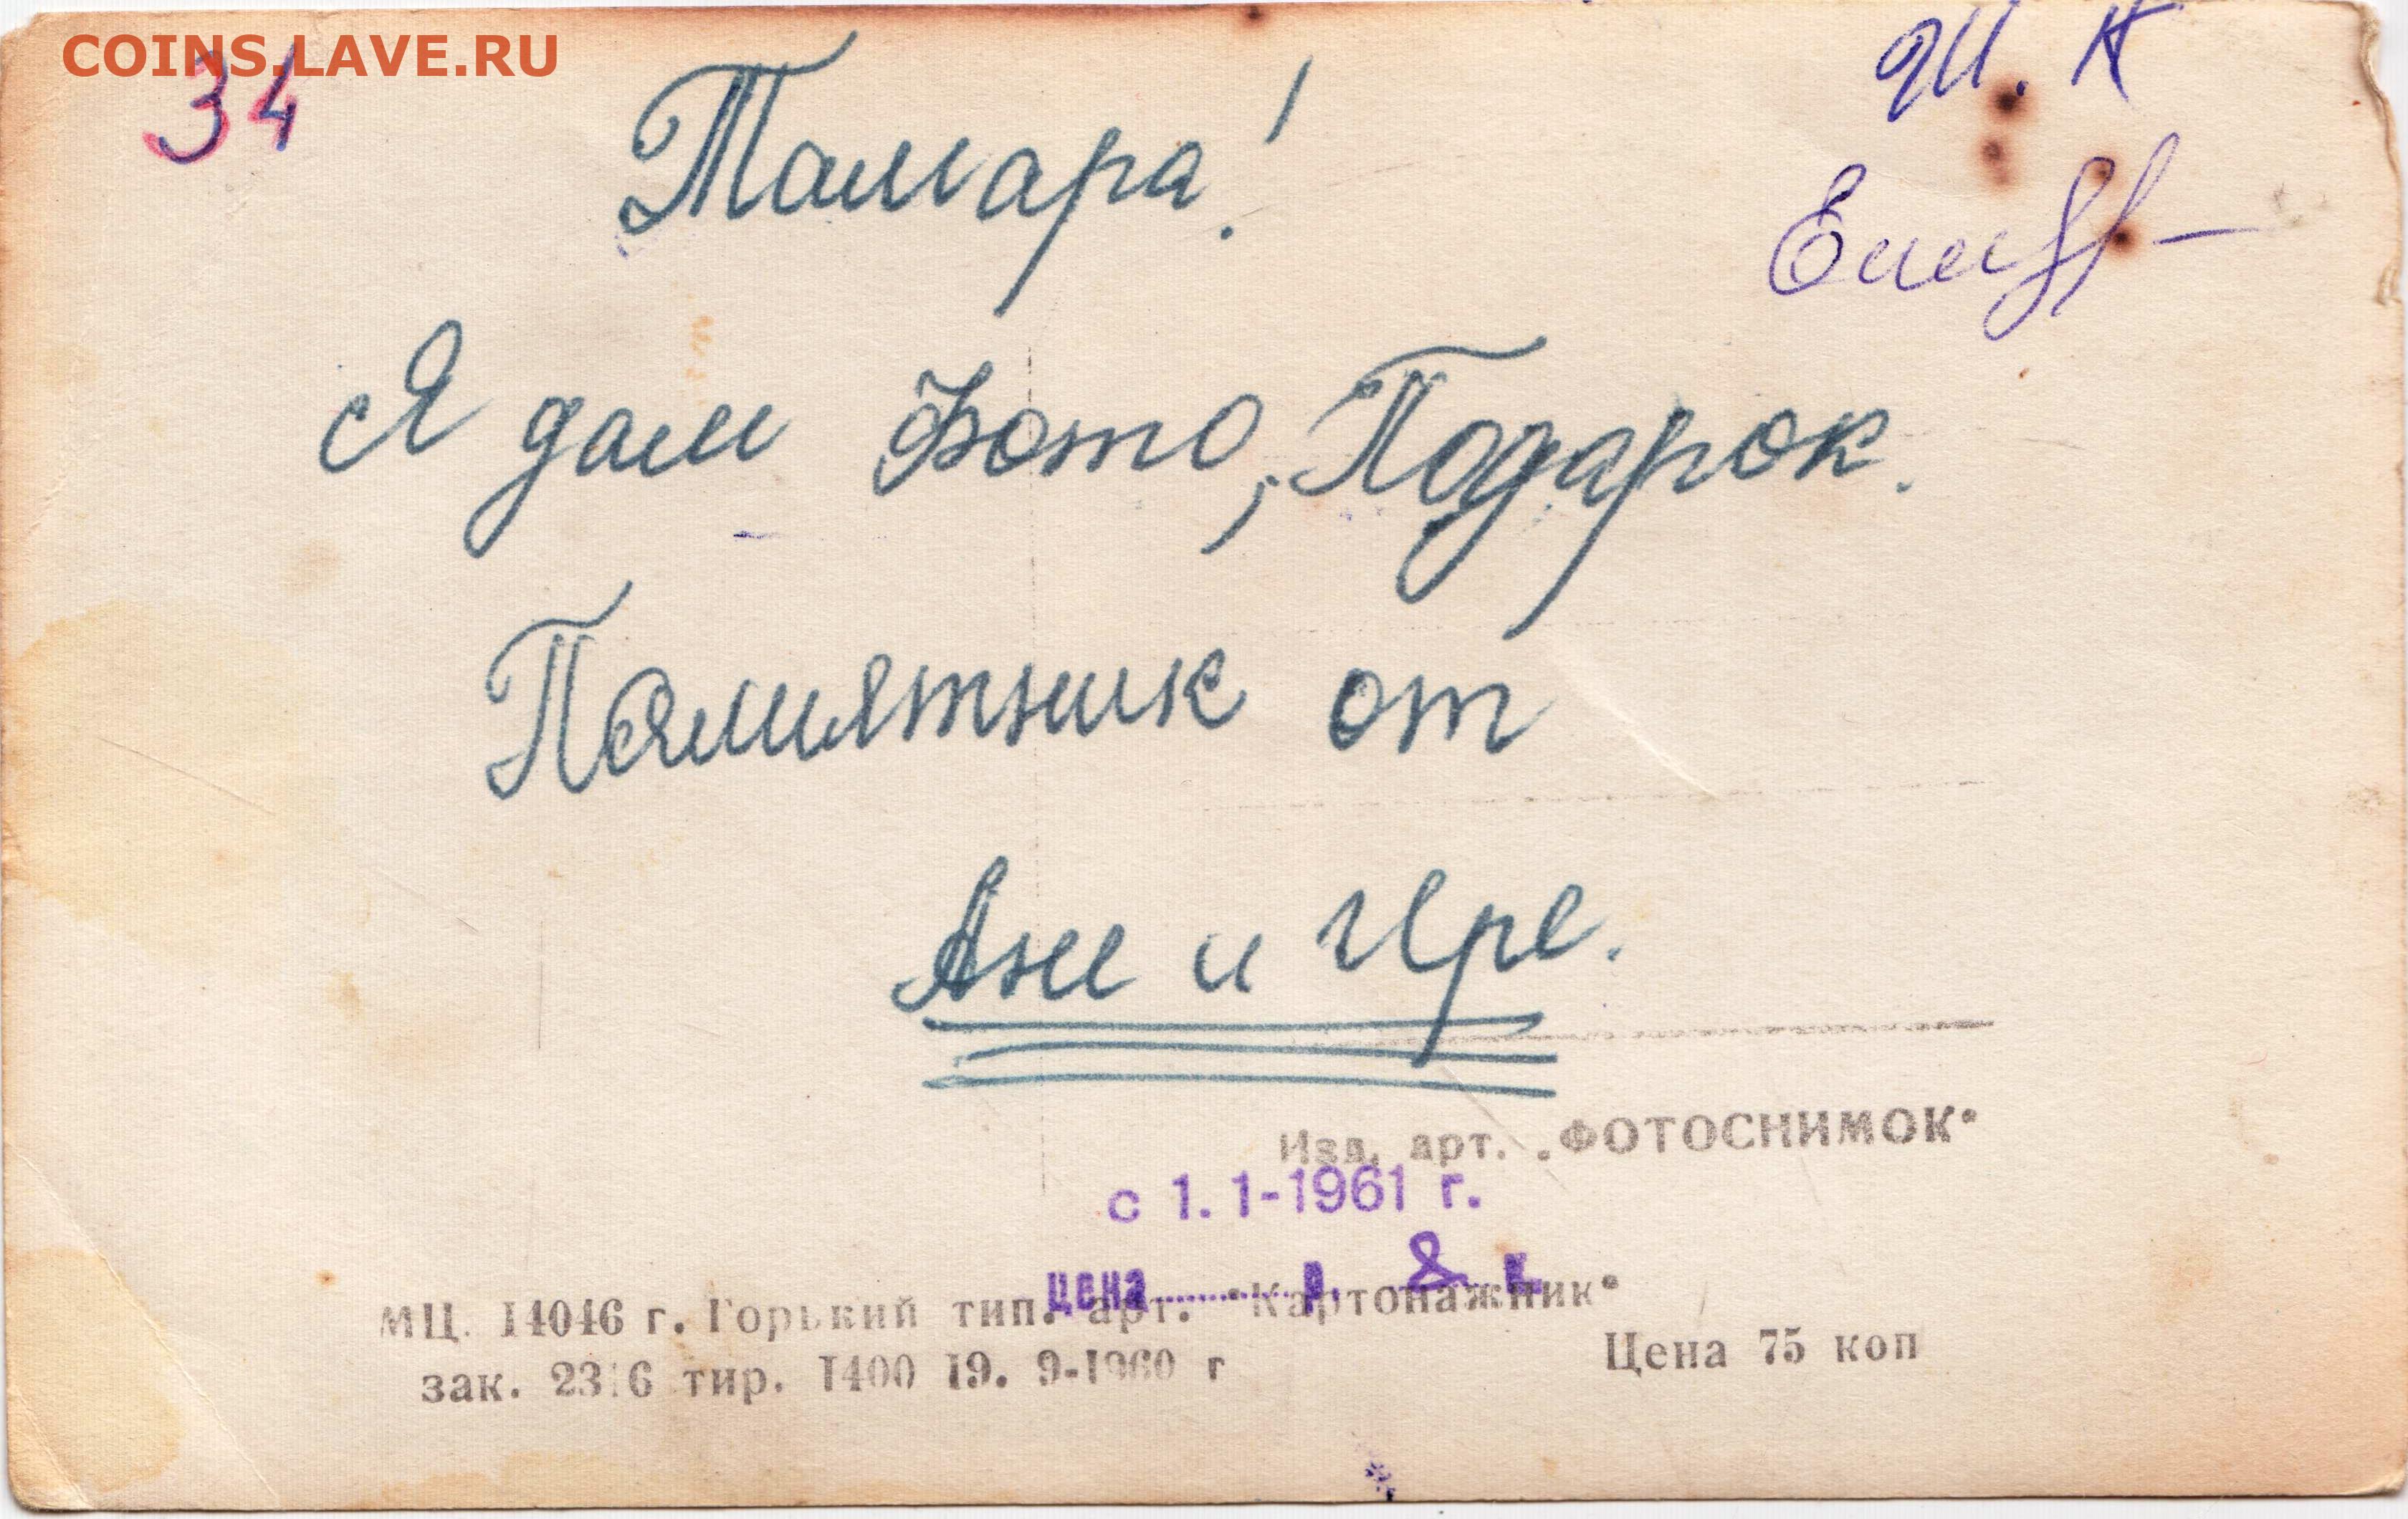 COINS.LAVE.RU
34
Тамара!
Я дам Фото, Подарок.
Памиятник от
Ани и Ире.
Изд. арт. „ФОТОСНИМОК"
с 1. 1-1961 г.
цена р. 8 к.
МЦ 14046 г. Горький тип. арт. "Картонажник"
зак. 2316 тир. 1400 19. 9-1960 г
Цена 75 коп